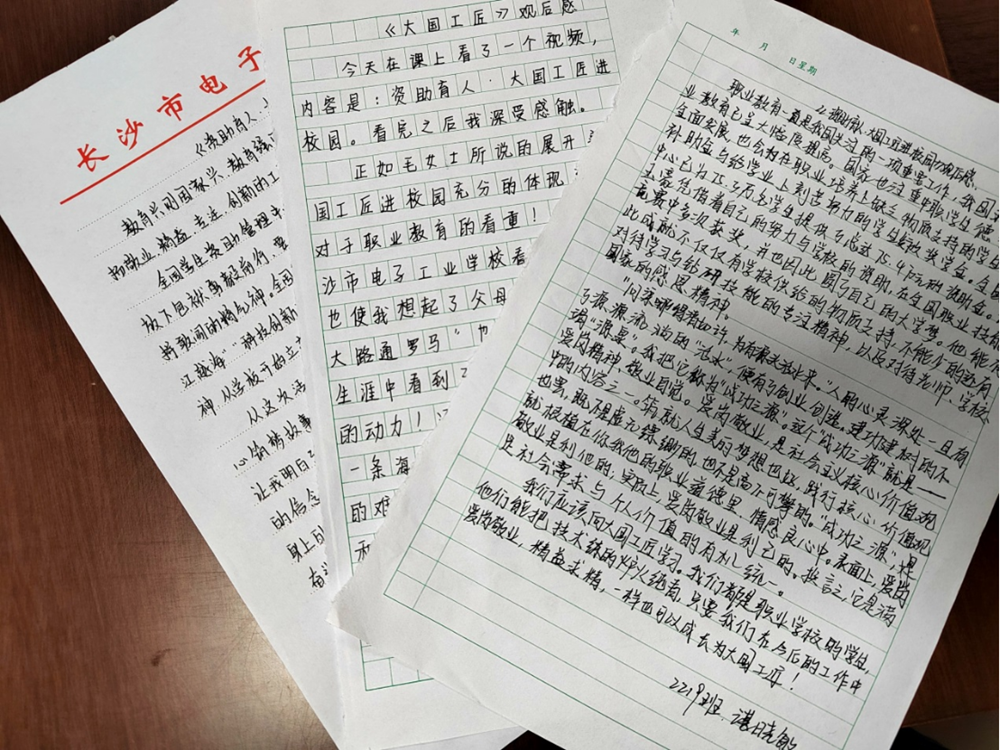 长沙市电子
《资助育人·
教育兴则国家兴，教育强
全国学生资助管理中
放下包袱、奋毅前行，要
江越海”“神技创新
神，从学校开的立
从这次活
心销精故事
让我明白
的信念
身上的
《大国工匠》观后感
今天在课上看了一个视频，
内容是：资助育人·大国工匠进
校园。看完之后我深受感触。
正如毛女士所说的展开
国工匠进校园充分的体现
对于职业教育的看重！
沙市电子工业学校看
也使我想起了父母
大路通罗马”
生涯中看到了
的动力！
一条海
的难
和
年 月 日 星期
职业教育一直是我国关注的一项重要工作，我国
业教育已呈大幅度提高。国家也注重职学生德
全面发展，也会对在职业培养上缺乏物质支持的学生
补助金与给学业上刻苦努力的学生绩效奖学金。全国
中心已为15.3万名学生提供了超过5.4万元的资助金。
生需凭借着自己的努力与学校的帮助，在全国职业技能
竞赛中多次获奖，并也因此圆了自己的大学梦。他能取
此成就不仅仅有学校供给的物质支持，不能少的还有
对待学习与钻研技能的专注精神，以及对待老师、学校
国家的感恩精神。
“问渠哪得清如许，为有源头活水来。”人的心灵深处一旦有
了源源流淌的“活水”，便有了创业创造，建功建树的不
竭“源泉”。我把它称为“成功之源”。这个“成功之源”就是——
爱岗精神，敬业自觉。爱岗敬业，是社会主义核心价值观
中的内容之一。筑就人生美的梦想也区，践行核心价值观
也罢，既不是虚无缥缈的，也不是高不可攀的。“成功之源”，是
就根植在你我他的职业道德里，情感良心中。表面上，爱岗
敬业是利他的，实际上，爱岗敬业是利己的。换言之，它是满
足社会需求与个人价值的有机统一。
我们应该向大国工匠学习。我们都是职业学校的学生，
他们能把技术练的炉火纯青，只要我们在今后的工作中
爱岗敬业，精益求精，一样也可以成长为大国工匠！
2219班 谌晓敏